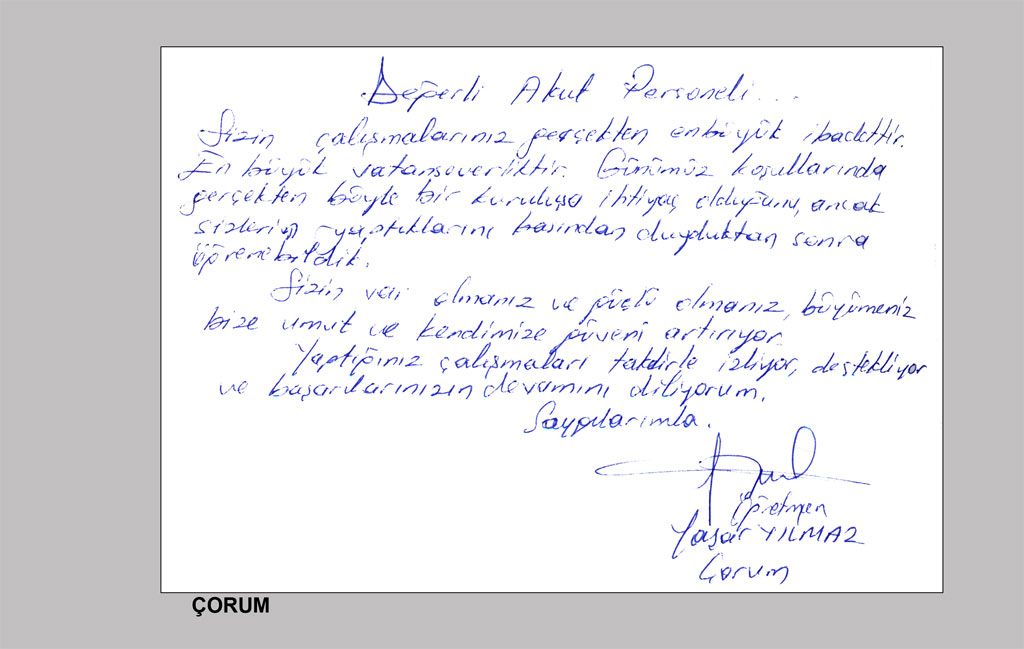 Değerli Akut Personeli...
Sizin çalışmalarınız gerçekten enbüyük ibadettir.
En büyük vatanseverliktir. Günümüz koşullarında
gerçekten böyle bir kuruluşa ihtiyaç olduğunu, ancak
sizlerin yaptıklarını basından duyduktan sonra
öğrenebildik.
Sizin var olmanız ve güçlü olmanız, büyümeniz
bize umut ve kendimize güveni artırıyor.
Yaptığınız çalışmaları takdirle izliyor, destekliyor
ve başarılarınızın devamını diliyorum.
Saygılarımla.
Öğretmen
Yaşar YILMAZ
Çorum
ÇORUM